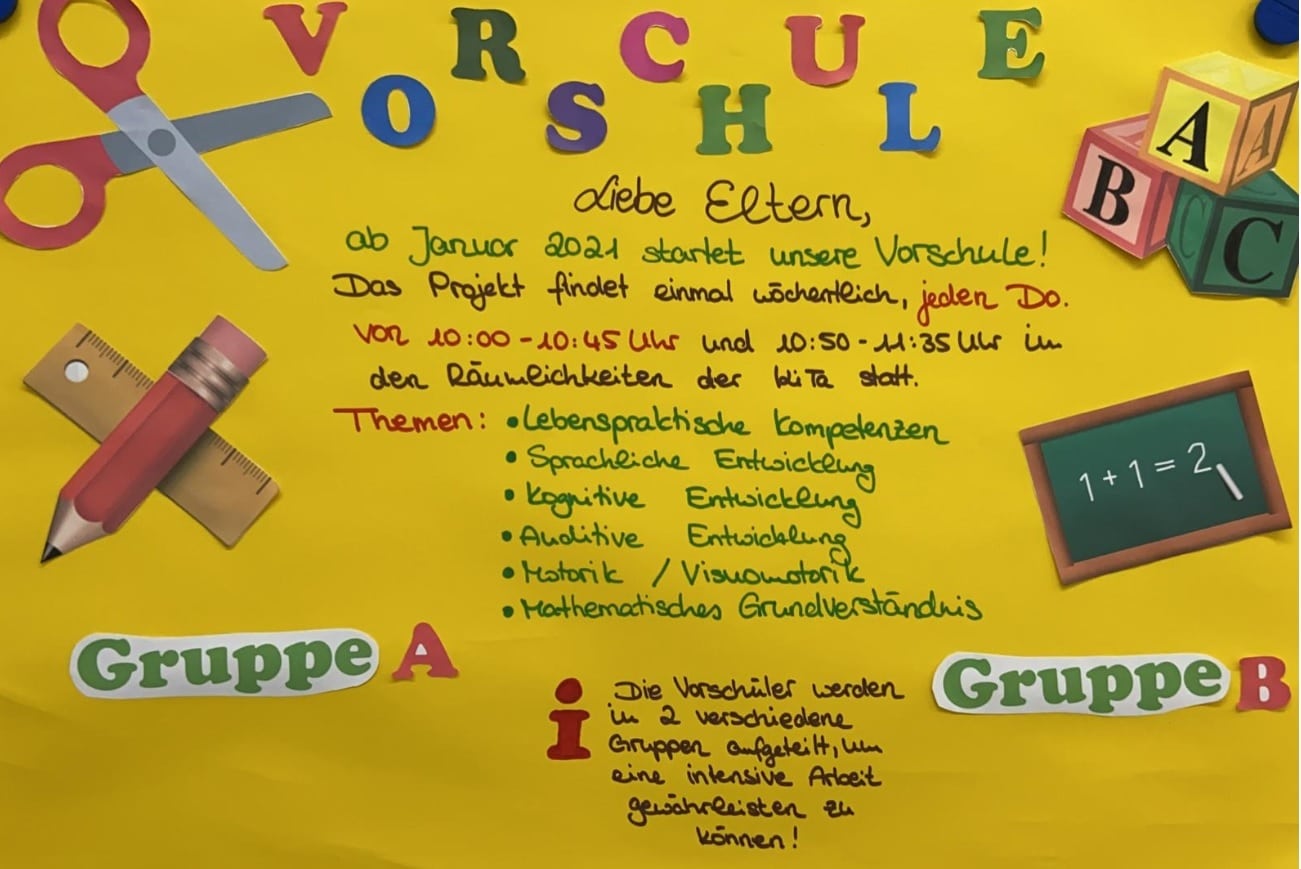 VORSCHULE
Liebe Eltern,
ab Januar 2021 startet unsere Vorschule!
Das Projekt findet einmal wöchentlich, jeden Do.
von 10:00-10:45 Uhr und 10:50-11:35 Uhr im
den Räumlichkeiten der kiTa statt.
Themen: • Lebenspraktische Kompetenzen
• Sprachliche Entwicklung
• Kognitive Entwicklung
• Auditive Entwicklung
• Motorik / Visuomotorik
• Mathematisches Grundverständnis
Gruppe A
Gruppe B
i
Die Vorschüler werden
in 2 verschiedene
Gruppen aufgeteilt, um
eine intensive Arbeit
gewährleisten zu
können!
A A
B
C C
1 + 1 = 2